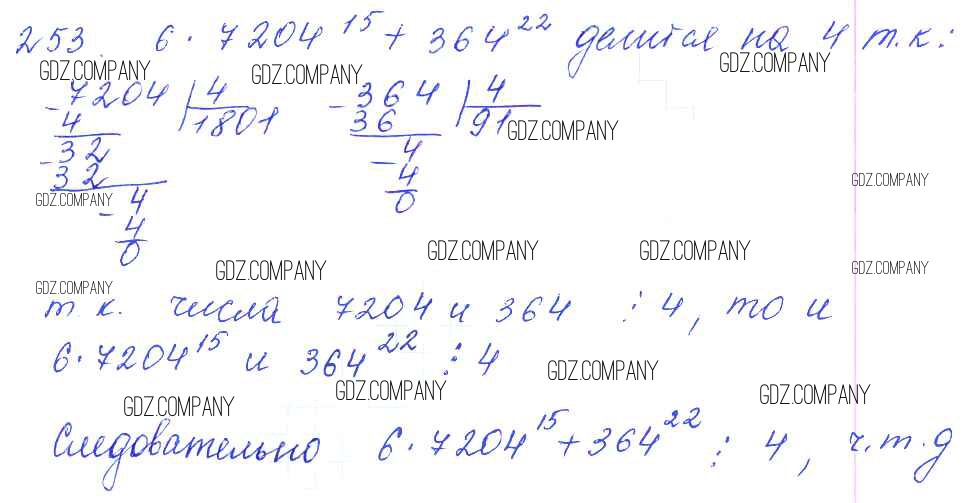 253. 6 · 7204¹⁵ + 364²² делится на 4 т.к:
GDZ.COMPANY GDZ.COMPANY GDZ.COMPANY
- 7204 | 4 - 364 | 4
4 1801 36 91 GDZ.COMPANY
- 32 - 4
32 4 GDZ.COMPANY
GDZ.COMPANY - 4 0
4
0 GDZ.COMPANY GDZ.COMPANY
GDZ.COMPANY GDZ.COMPANY
GDZ.COMPANY
т к. числа 7204 и 364 ⋮ 4, то и
6 · 7204¹⁵ и 364²² ⋮ 4
GDZ.COMPANY
GDZ.COMPANY GDZ.COMPANY GDZ.COMPANY
Следовательно 6 · 7204¹⁵ + 364²² ⋮ 4, ч.т.д